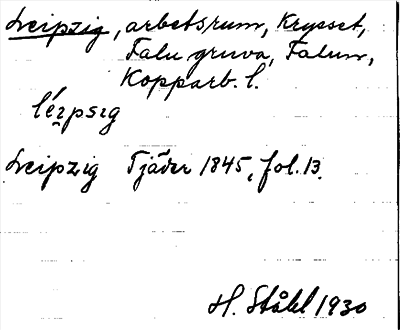 Leipzig, arbetsrum, Krysset,
Falu gruva, Falun,
Kopparb. l.
léɪpsɪg
Leipzig Tjäder 1845, fol. 13.
H. Ståhl 1930